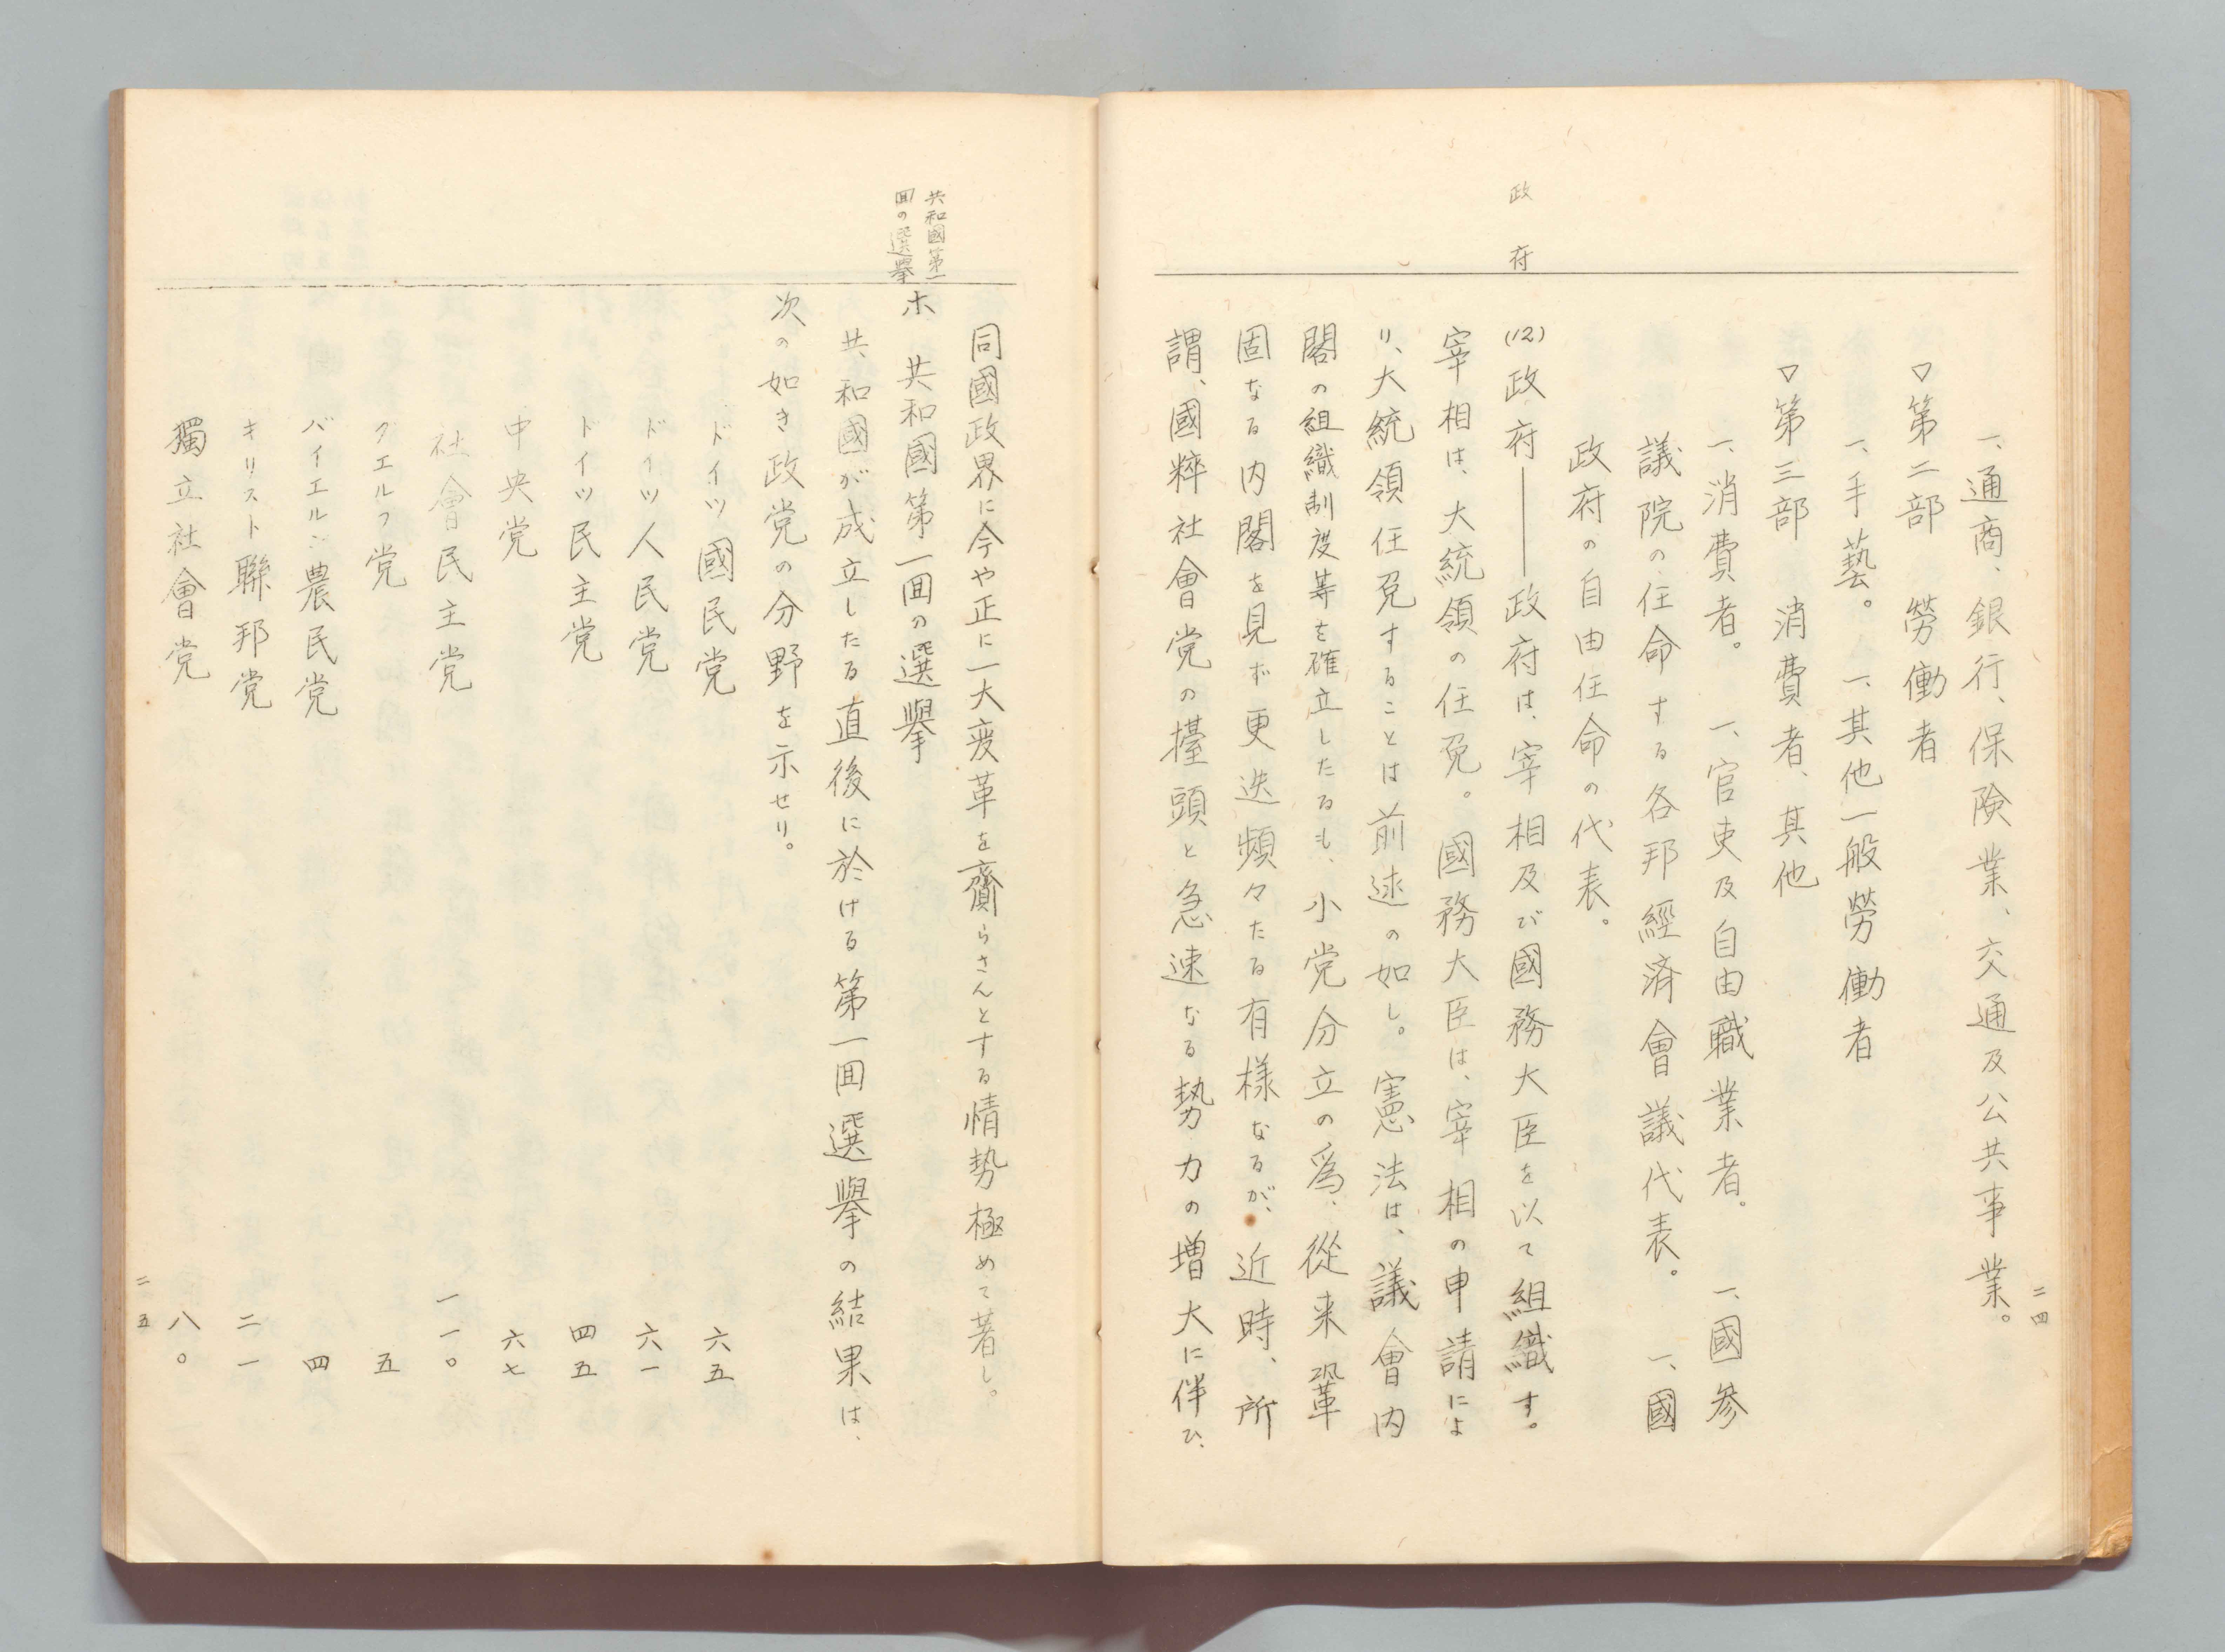 二四
政府
一、通商、銀行、保険業、交通及公共事業。
▽第二部　勞働者
一、手藝。　一、其他一般勞働者
▽第三部　消費者、其他
一、消費者。　一、官吏及自由職業者。　一、國參
議院の任命する各邦經済會議代表。　一、國
政府の自由任命の代表。
(12)政府――政府は、宰相及び國務大臣を以て組織す。
宰相は、大統領の任免。國務大臣は、宰相の申請によ
り、大統領任免することは前述の如し。憲法は、議會内
閣の組織制度等を確立したるも、小党分立の爲、從来鞏
固なる内閣を見ず更迭頻々たる有様なるが、近時、所
謂、國粹社會党の擡頭と急速なる勢力の増大に伴ひ、
同國政界に今や正に一大変革を齎らさんとする情勢極めて著し。
共和國第一
回の選擧
ホ　共和國第一回の選擧
共和國が成立したる直後に於ける第一回選擧の結果は、
次の如き政党の分野を示せり。
ドイツ國民党　六五
ドイツ人民党　六一
ドイツ民主党　四五
中央党　六七
社會民主党　一一〇
クエルフ党　五
バイエルン農民党　四
キリスト聯邦党　二一
獨立社會党　八〇
二五